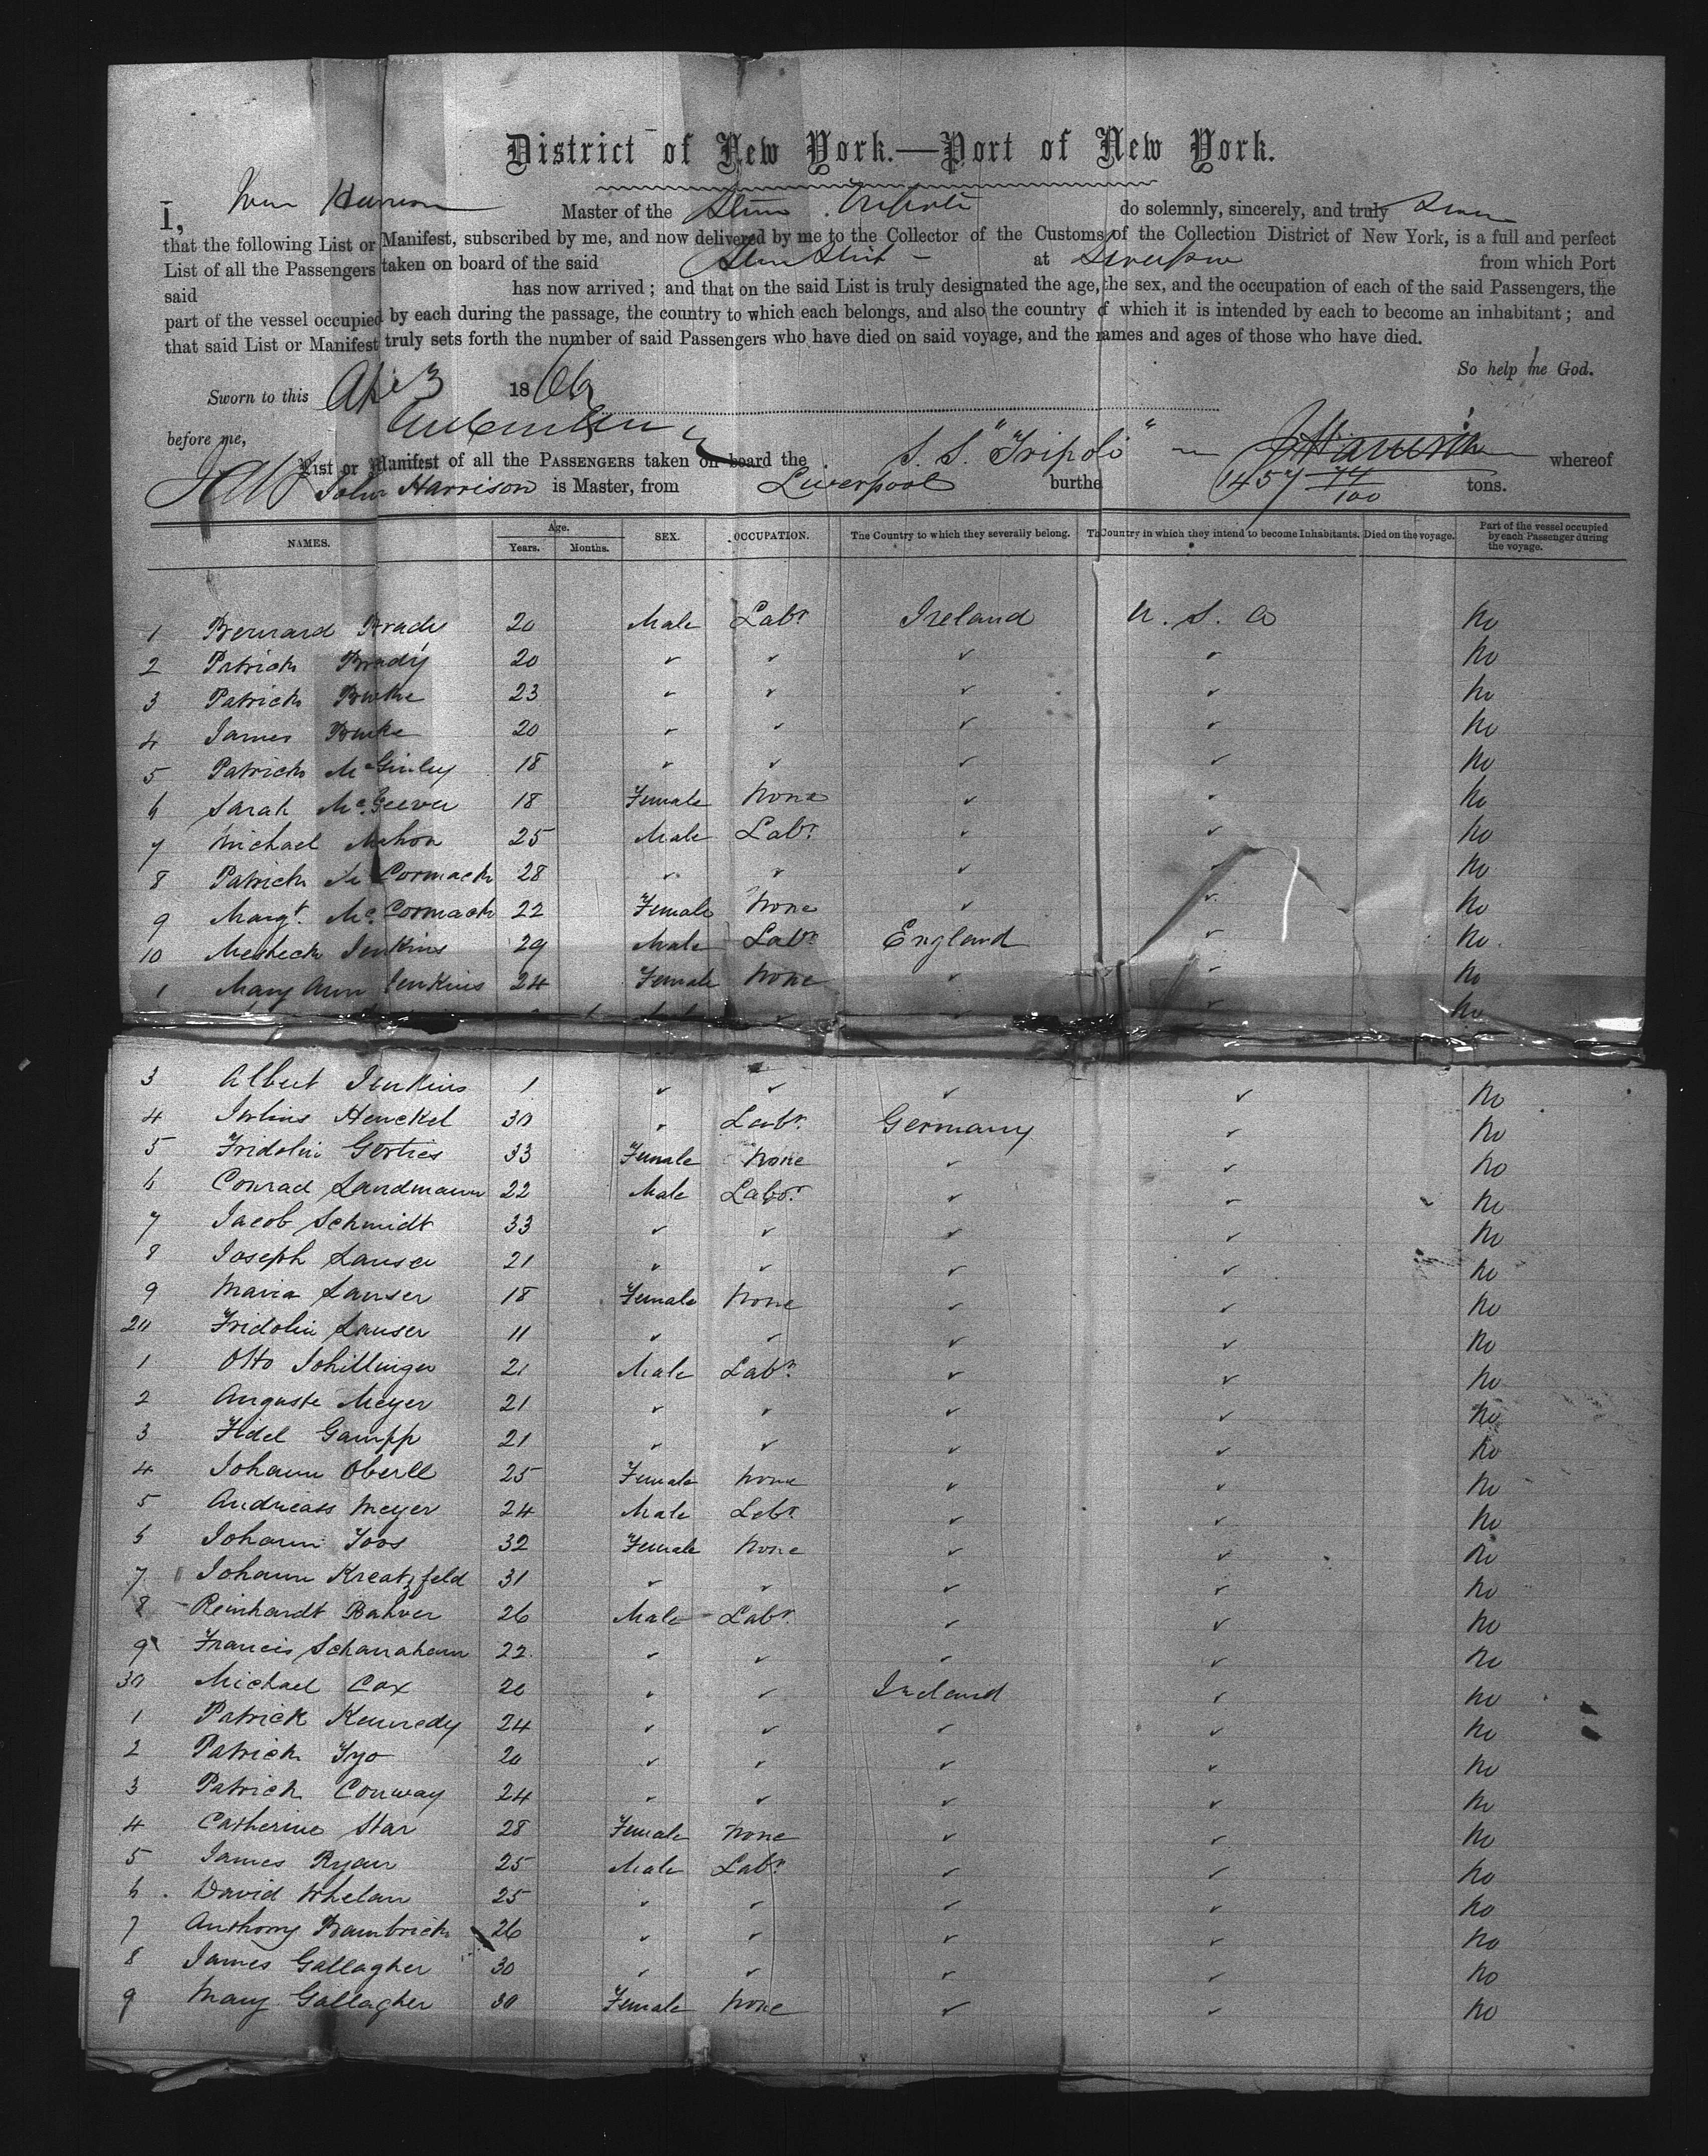 District of New York.—Port of New York.
I, Harrison Master of the Steam Tripoli do solemnly, sincerely, and truly Swear
that the following List or Manifest, subscribed by me, and now delivered by me to the Collector of the Customs of the Collection District of New York, is a full and perfect
List of all the Passengers taken on board of the said Steam Ship at Liverpool from which Port
said has now arrived; and that on the said List is truly designated the age, the sex, and the occupation of each of the said Passengers, the
part of the vessel occupied by each during the passage, the country to which each belongs, and also the country of which it is intended by each to become an inhabitant; and
that said List or Manifest truly sets forth the number of said Passengers who have died on said voyage, and the names and ages of those who have died.
So help me God.
Sworn to this 18
before me,
List or Manifest of all the PASSENGERS taken on board the S. S. "Tripoli" whereof
John Harrison is Master, from Liverpool burthe 1457 74/100 tons.
NAMES. Age. Years. Months. SEX. OCCUPATION. The Country to which they severally belong. Th Country in which they intend to become Inhabitants. Died on the voyage. Part of the vessel occupied by each Passenger during the voyage.
1 Bernard Brady 20 Male Labr Ireland U. S. A No
2 Patrick Brady 20 " " " " No
3 Patrick Burke 23 " " " " No
4 James Burke 20 " " " " No
5 Patrick McGinley 18 " " " " No
6 Sarah McGeever 18 Female None " " No
7 Michael Mahon 25 Male Labr " " No
8 Patrick McCormack 28 " " " " No
9 Margt. McCormack 22 Female None " " No
10 Mesheck Jenkins 29 Male Labr England " No
1 Mary Ann Jenkins 24 Female None " " No
" " " No
3 Albert Jenkins 1 " " " " No
4 Julius Henckel 30 " Labr Germany " No
5 Fridolin Gerties 33 Female None " " No
6 Conrad Landmann 22 Male Labr " " No
7 Jacob Schmidt 33 " " " " No
8 Joseph Lauser 21 " " " " No
9 Maria Lauser 18 Female None " " No
20 Fridolin Lauser 11 " " " " No
1 Otto Schillinger 21 Male Labr " " No
2 Auguste Meyer 21 " " " " No
3 Fidel Gampp 21 " " " " No
4 Johann Oberle 25 Female None " " No
5 Andreass Meyer 24 Male Labr " " No
6 Johann Joos 32 Female None " " No
7 Johann Kreatzfeld 31 " " " " No
8 Reinhardt Bahver 26 Male Labr " " No
9 Francis Schanahann 22 " " " " No
30 Michael Cox 20 " " Ireland " No
1 Patrick Kennedy 24 " " " " No
2 Patrick Tyo 20 " " " " No
3 Patrick Conway 24 " " " " No
4 Catherine Star 28 Female None " " No
5 James Ryan 25 Male Labr " " No
6 David Whelan 25 " " " " No
7 Anthony Bambrick 26 " " " " No
8 James Gallagher 30 " " " " No
9 Mary Gallagher 30 Female None " " No